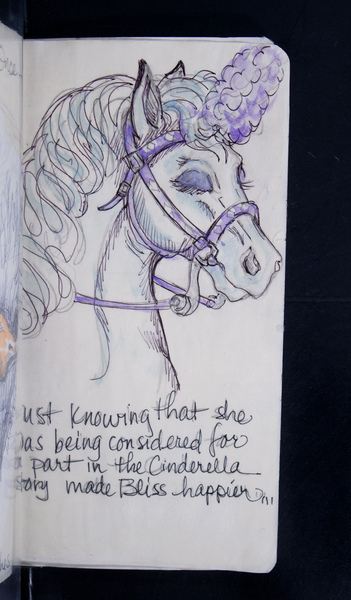 ust Knowing that she
as being considered for
a part in the Cinderella
story made Bliss happier...